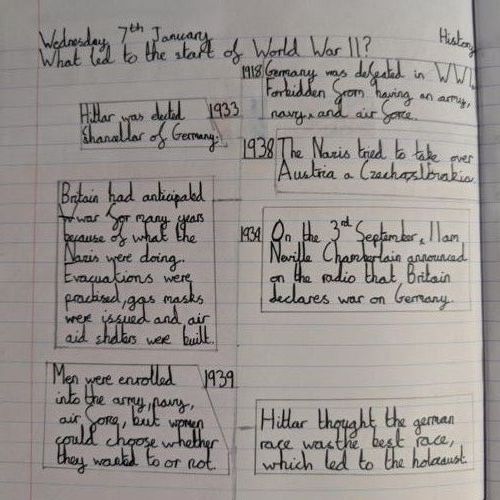 Wednesday 7th January
History
What led to the start of World War II?
1918
Germany was defeated in WW1
Forbidden from having an army,
navy, and air force.
Hitlar was elected
chancellar of Germany.
1933
1938
The Nazis tried to take over
Austria a Czechaslovakia
Britain had anticipated
war for many years
because of what the
Nazis were doing.
Evacuations were
practised, gas masks
were issued and, air
aid shelters were built.
1939
On the 3rd September, 11am
Neville Chamberlain announced
on the radio that Britain
declares war on Germany.
Men were enrolled
into the army, navy,
air force, but women
could choose whether
they wanted to or not.
1939
Hitlar thought the german
race was the best race,
which led to the holocaust.